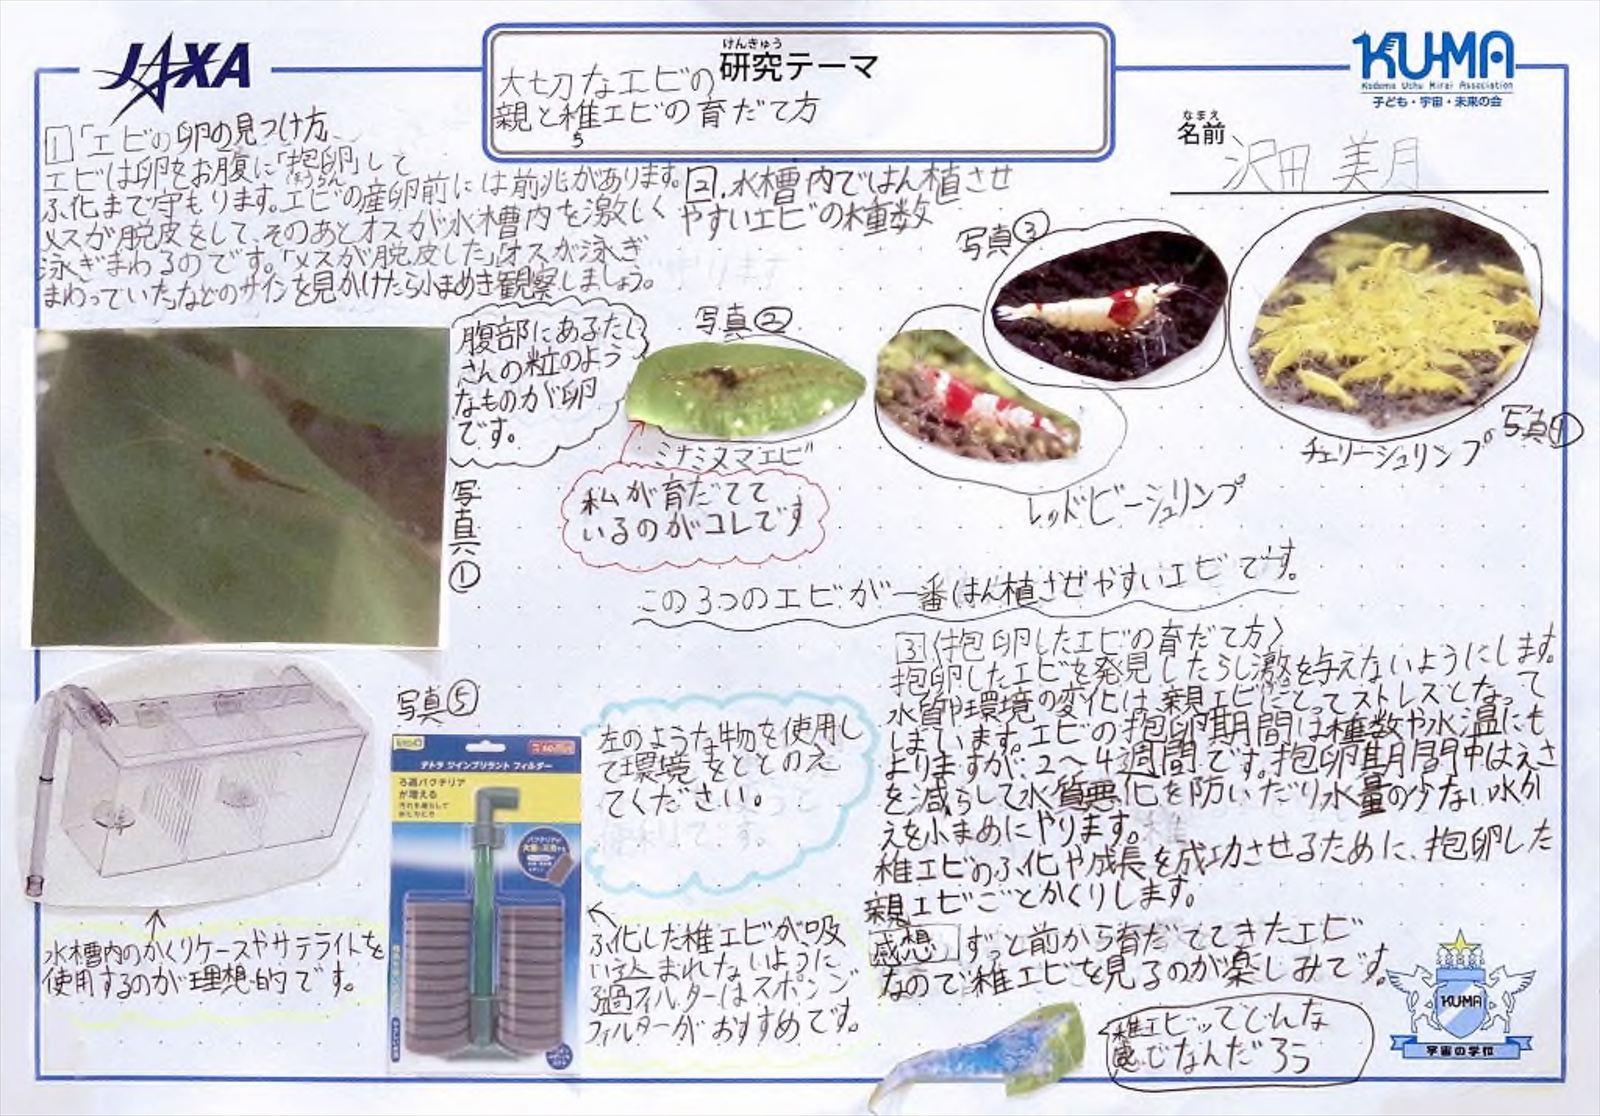 JAXA
けんきゅう
研究テーマ
大切なエビの
親と稚エビの育だて方
ち
KU-MA
Kodomo Uchu Mirai Association
子ども・宇宙・未来の会
なまえ
名前
沢田 美月
1「エビの卵の見つけ方
エビは卵をお腹に「抱卵」して
ほうらん
ふ化まで守もります。エビの産卵前には前兆があります。
メスが脱皮をして、そのあとオスが水槽内を激しく
泳ぎまわるのです。「メスが脱皮した」「オスが泳ぎ
まわっていた」などのサインを見かけたら小まめき観察しましょう。
2.水槽内ではん植させ
やすいエビの種数
腹部にあるたく
さんの粒のよう
なものが卵
です。
写真①
写真②
ミナミヌマエビ
私が育だてて
いるのがコレです
写真③
レッドビーシュリンプ
チェリーシュリンプ
写真④
この3つのエビが一番はん植させやすいエビです。
3〈抱卵したエビの育だて方〉
抱卵したエビを発見したらし激を与えないようにします。
水質や環境の変化は親エビにとってストレスとなって
しまいます。エビの抱卵期間は種数や水温にも
よりますが、2〜4週間です。抱卵期間中はえさ
を減らして水質悪化を防いだり水量の少ない水か
えを小まめにやります。
稚エビのふ化や成長を成功させるために、抱卵した
親エビごとかくりします。
感想 ずっと前から育だててきたエビ
なので稚エビを見るのが楽しみです。
稚エビってどんな
感じなんだろう
写真⑤
テトラ ツインブリラント フィルター
ろ過バクテリア
が増える
左のような物を使用し
て環境をととのえ
てください。
ふ化した稚エビが吸
い込まれないように
ろ過フィルターはスポンジ
フィルターがおすすめです。
水槽内のかくりケースやサテライトを
使用するのが理想的です。
KUMA
宇宙の学校